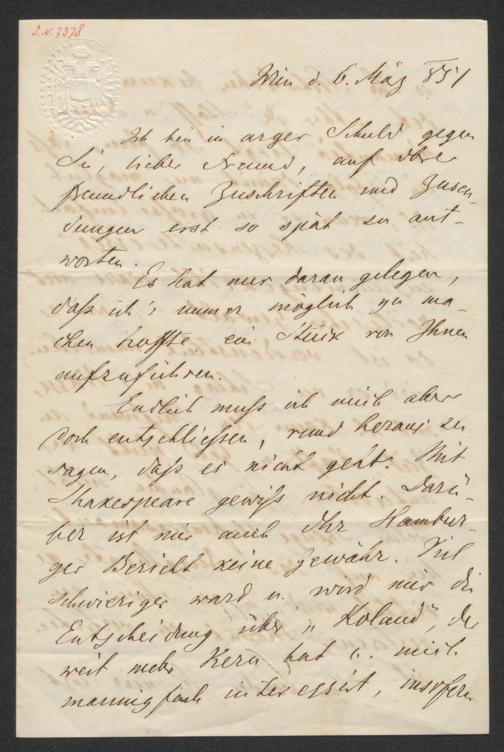 I. N. 7378
Wien d. 6. März 851
Ich bin in arger Schuld gegen
Sie, lieber Freund, auf Ihre
freundlichen Zuschriften und Zusen-
dungen erst so spät zu ant-
worten.
Es hat nur daran gelegen,
daß ich's immer möglich zu ma-
chen hoffte ein Stück von Ihnen
aufzuführen.
Endlich muß ich mich aber
doch entschließen, rund heraus zu
sagen, daß es nicht geht. Mit
Shakespeare gewiß nicht. Darü-
ber ist mir auch Ihr Hambur-
ger Bericht keine Gewähr. Viel
schwieriger ward u. wird mir die
Entscheidung über „Roland", der
weit mehr Kern hat u. mich
mannigfach interessirt, insofern